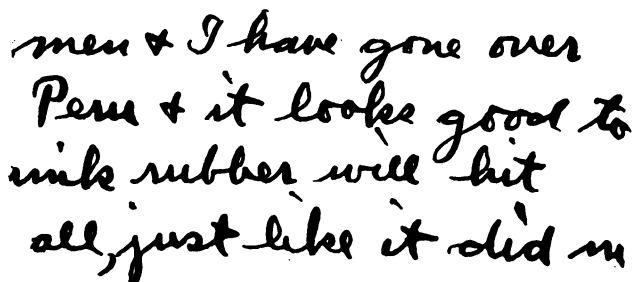 men & I have gone over
Peru & it looks good to
rubber will hit
all, just like it did